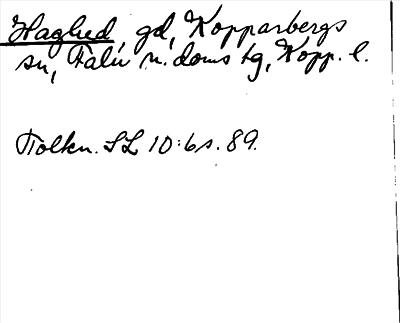 Haglud, gd, Kopparbergs
sn, Falu n. doms tg, Kopp. l.
Tolkn. SL 10:6 s. 89.